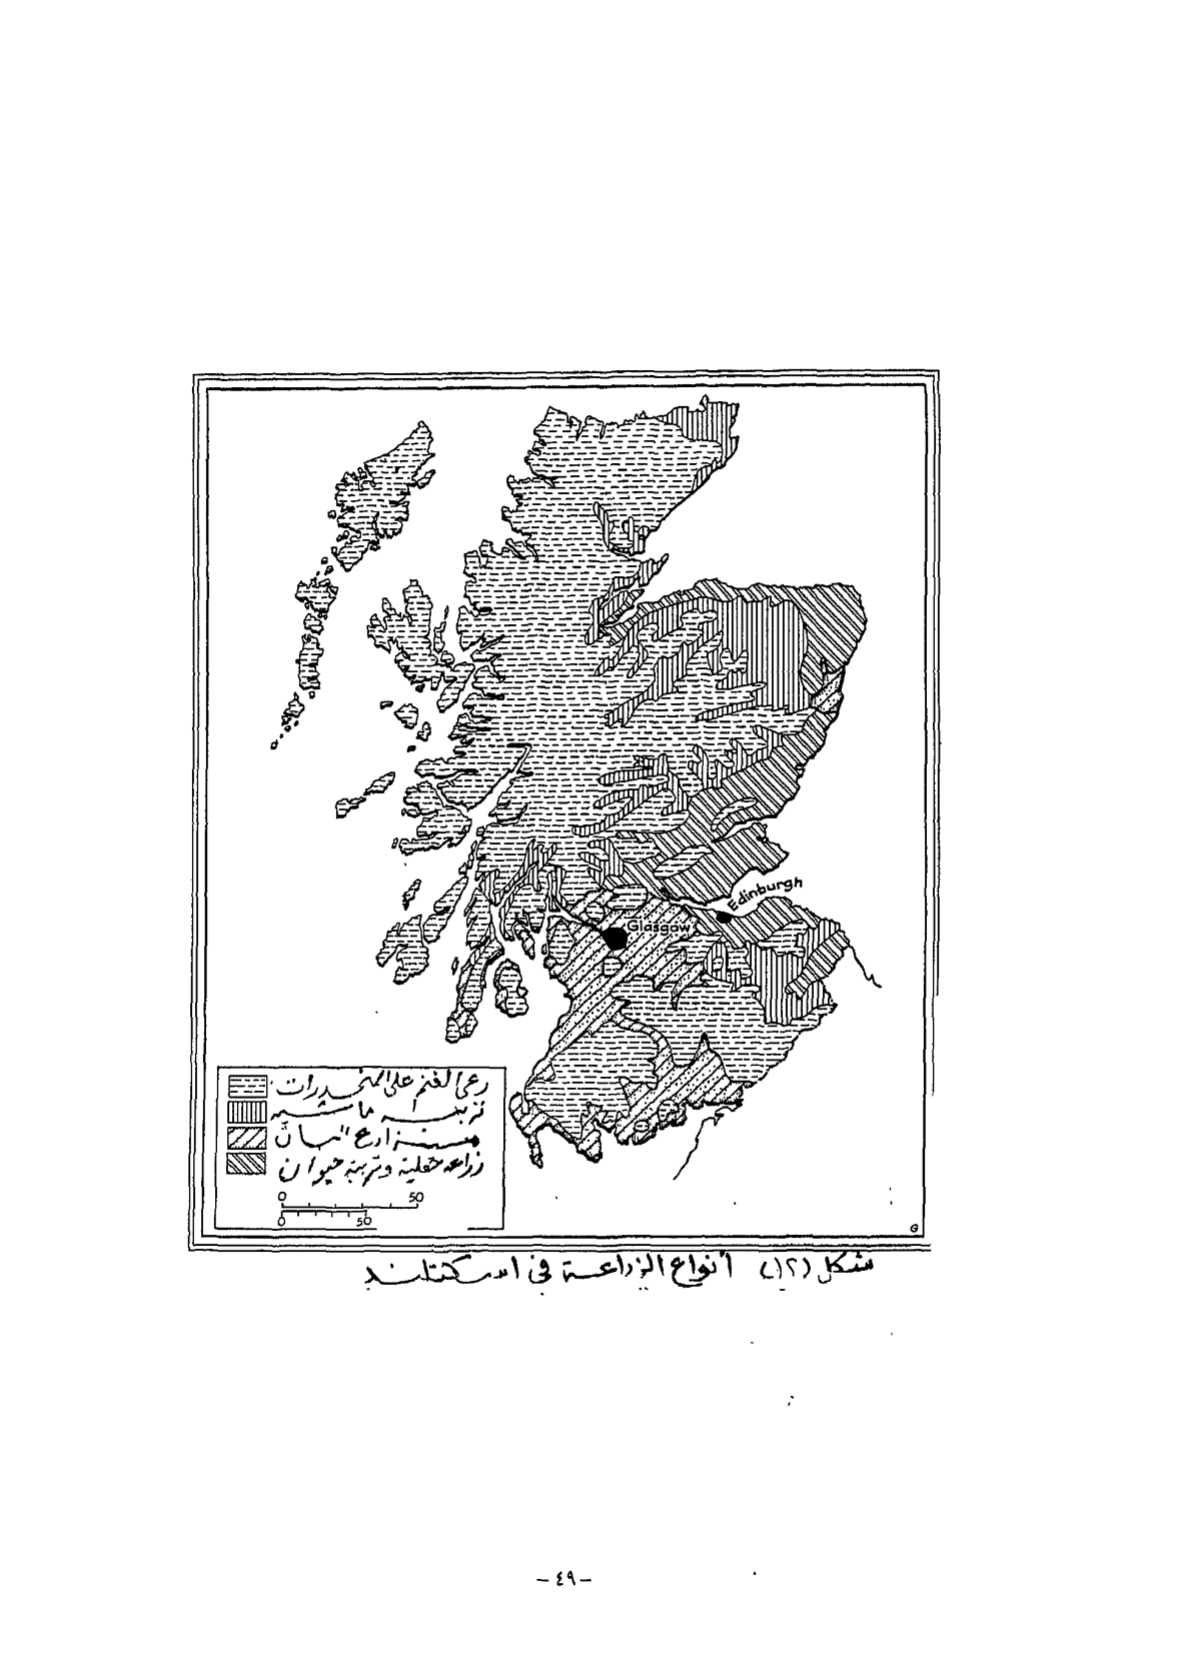 Edinburgh
Glasgow
رعى الغنم على المنحدرات
تربية ماشية
مزارع البان
زراعة حقلية وتربية حيوان
0 50
0 50
G
شكل (١٢) أنواع الزراعة فى اسكتلند
- ٤٩ -